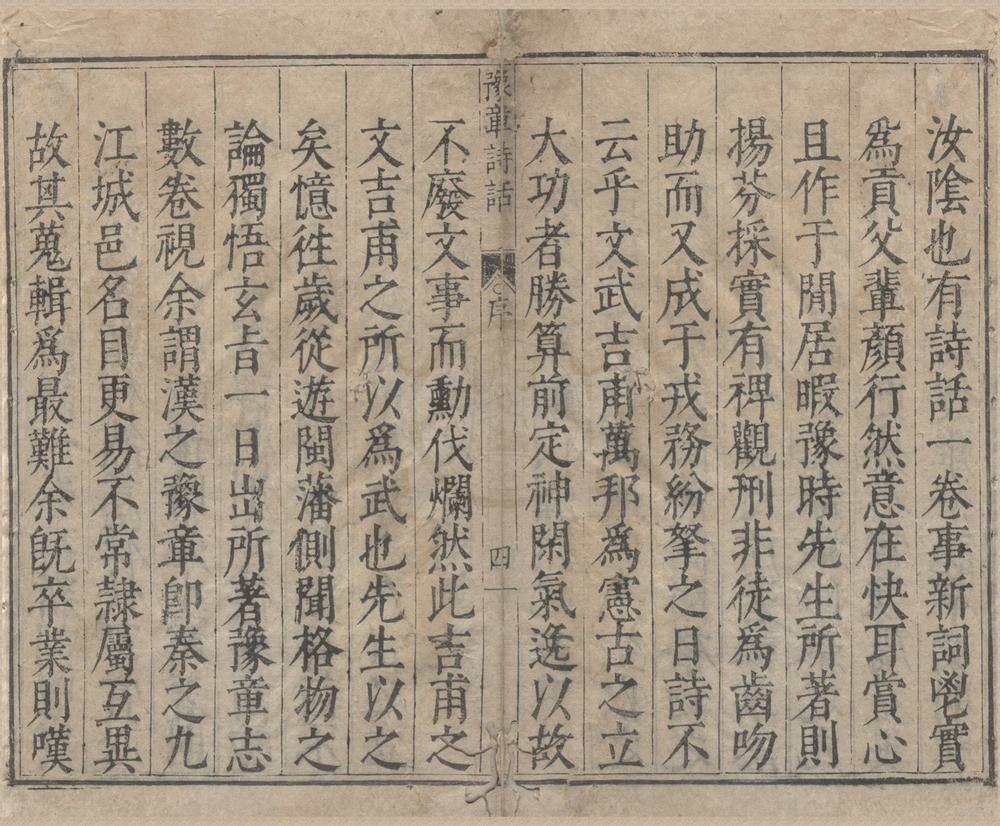 汝陰也有詩話一卷事新詞逸實
爲貢父輩顏行然意在快耳賞心
且作于閒居暇豫時先生所著則
揚芬採實有裨觀刑非徒爲齒吻
助而又成于戎務紛拏之日詩不
云乎文武吉甫萬邦爲憲古之立
大功者勝算前定神閑氣逸以故
豫章詩話
序
四
不廢文事而勳伐爛然此吉甫之
文吉甫之所以爲武也先生以之
矣憶往歲從遊閩藩側聞格物之
論獨悟玄旨一日出所著豫章志
數卷視余謂漢之豫章卽秦之九
江城邑名目更易不常隷屬互異
故其蒐輯爲最難余旣卒業則嘆